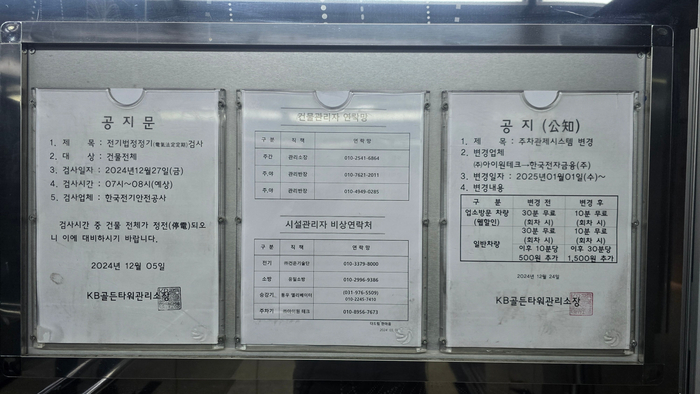 공 지 문
1. 제 목 : 전기법정정기(電氣法定定期)검사
2. 대 상 : 건물전체
3. 검사일자 : 2024년12월27일(금)
4. 검사시간 : 07시~08시(예상)
5. 검사업체 : 한국전기안전공사
검사시간 중 건물 전체가 정전(停電)되오
니 이에 대비하시기 바랍니다.
2024년 12월 05일
KB골든타워관리소장
건물관리자 연락망
구 분 직 책 연 락 망
주간 관리소장 010-2541-6864
주.야 관리반장 010-7621-2011
주.야 관리반장 010-4949-0285
시설관리자 비상연락처
구 분 직 책 연 락 망
전기 010-3379-8000
소방 010-2996-9386
승강기 (031-976-5509)
010-2245-7410
주차기 ㈜아이원 테크 010-8956-7673
공 지 (公知)
1. 제 목 : 주차관제시스템 변경
2. 변경업체
㈜아이원테크→한국전자금융(주)
3. 변경일자 : 2025년01월01일(수)~
4. 변경내용
구 분 변경 전 변경 후
업소방문 차량 30분 무료 10분 무료
(웹할인) (회차 시) (회차 시)
일반차량 30분 무료 10분 무료
(회차 시) (회차 시)
이후 10분당 이후 30분당
500원 추가 1,500원 추가
2024년 12월 24일
KB골든타워관리소장